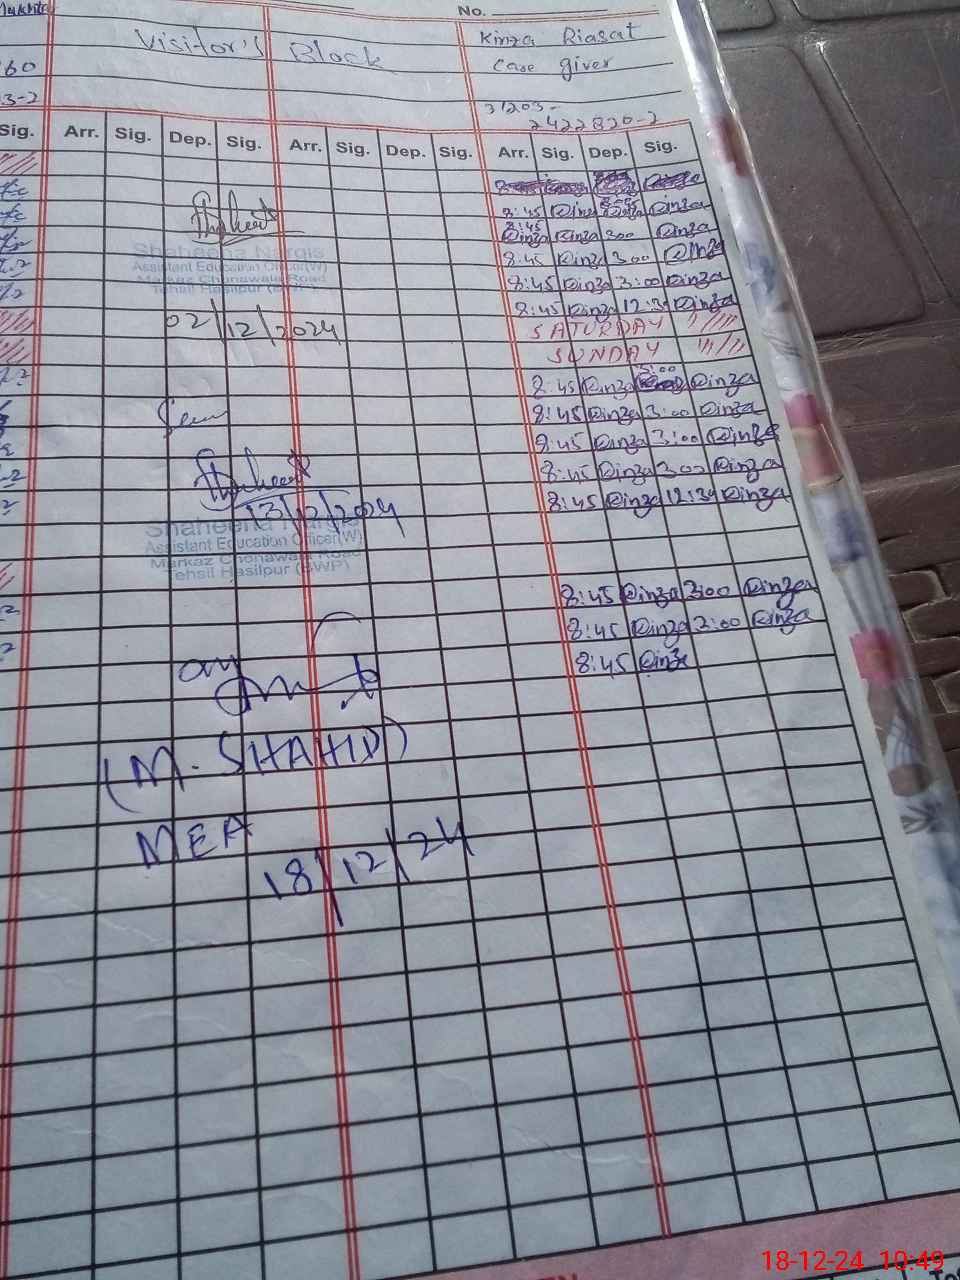 No.
Visitor's Block
Kinza Riasat
Care giver
31203-
2422820-2
Sig. Arr. Sig. Dep. Sig. Arr. Sig. Dep. Sig. Arr. Sig. Dep. Sig.
8:45 Qinza Qinza
8:45
Qinza Qinza 300 Qinza
8:45 Qinza 300 Qinza
8:45 Qinza 3:00 Qinza
8:45 Qinza 12:30 Qinza
SATURDAY
SUNDAY
3:00
8:45 Qinza Qinza
8:45 Qinza 3:00 Qinza
8:45 Qinza 3:00 Qinza
8:45 Qinza 300 Qinza
8:45 Qinza 12:30 Qinza
8:45 Qinza 3:00 Qinza
8:45 Qinza 2:00 Qinza
8:45 Qinza
Shaheena Nargis
Assistant Education Officer(W)
Markaz Chonawala Road
Tehsil Hasilpur (BWP)
02/12/2024
13/12/2024
Shaheena Nargis
Assistant Education Officer(W)
Markaz Chonawala Road
Tehsil Hasilpur (BWP)
(M. SHAHID)
MEA
18/12/24
18-12-24 10:49